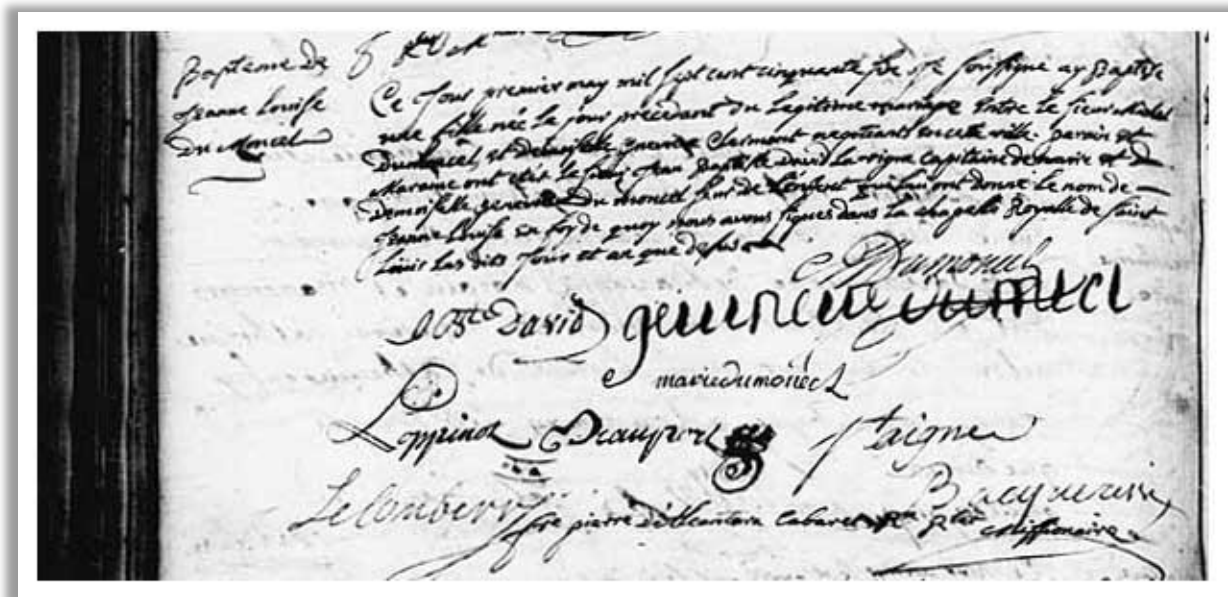 Bapteme de
Jeanne Louise
Du Moncel
Ce jour premier may mil sept cent cinquante soussigné ay Baptisé
une fille née le jour précédant du Legitime mariage entre le sieur Michel
Dumoncel, et demoiselle genevieve Clermont negotiants en cette ville. parain et
Maraine ont etés le sieur Jean Baptiste David Capitaine de et
demoiselle genevieve Du moncel sœur de L'enfant qui lui ont donné le nom de
Jeanne Louise en foy de quoy nous avons signés dans la chapelle Royalle de Saint
Louis Les dits Jour et an que dessus
Dumoncel
Bste David genevieve dumoncel
marie dumoncel
Loppinot Beauport
Le Coubert
fre pierre d'Alcantara Cabaret missionaire